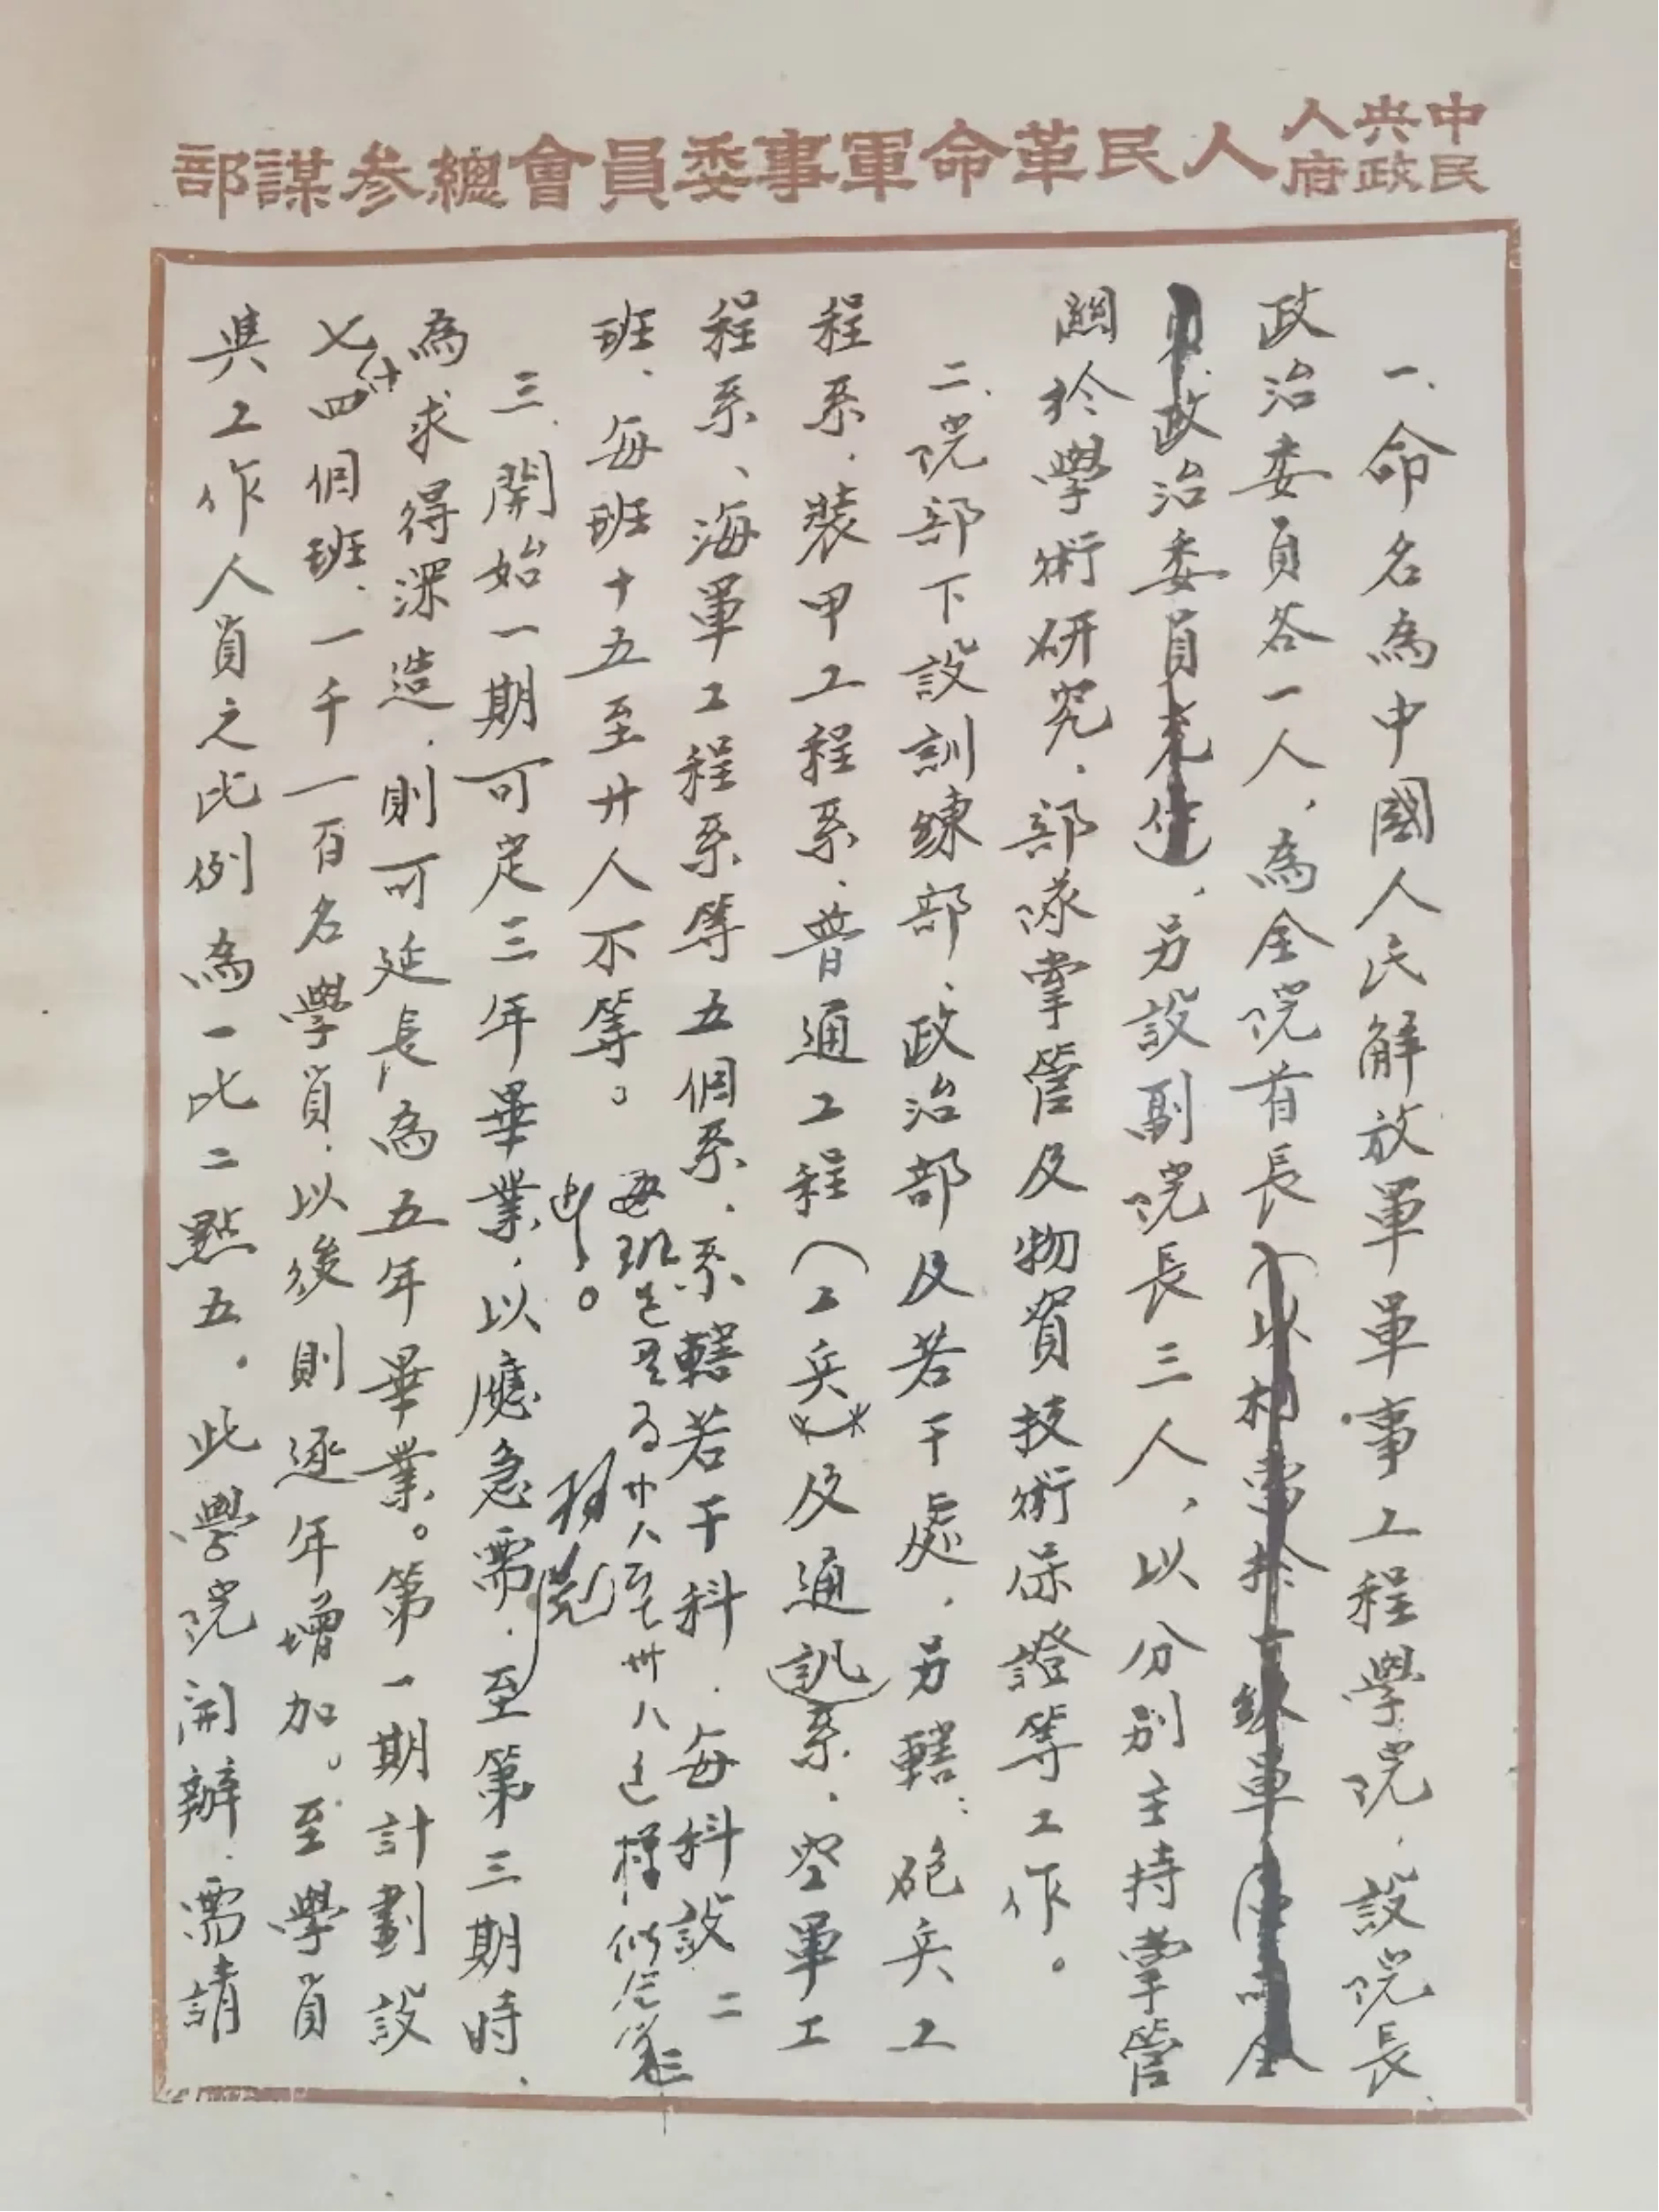 中央人民政府人民革命軍事委員會總參謀部
一、命名為中國人民解放軍軍事工程學院，設院長、
政治委員各一人，為全院首長（以相當於
政治委員充任，另設副院長三人，以分別主持掌管
關於學術研究、部隊掌管及物資技術保證等工作。
二、院部下設訓練部、政治部及若干處，另轄：砲兵工
程系、裝甲工程系、普通工程（工兵）及通訊系、空軍工
程系、海軍工程系等五個系，系轄若干科，每科設二三
班，每班十五至廿人不等。
每班廿人至卅人這樣似
三、開始一期可定三年畢業，以應急需，至第三期時，
為求得深造，則可延長為五年畢業。第一期計劃設
七十四個班，一千一百名學員，以後則逐年增加。至學員
與工作人員之比例為一比二點五。此學院開辦，需請